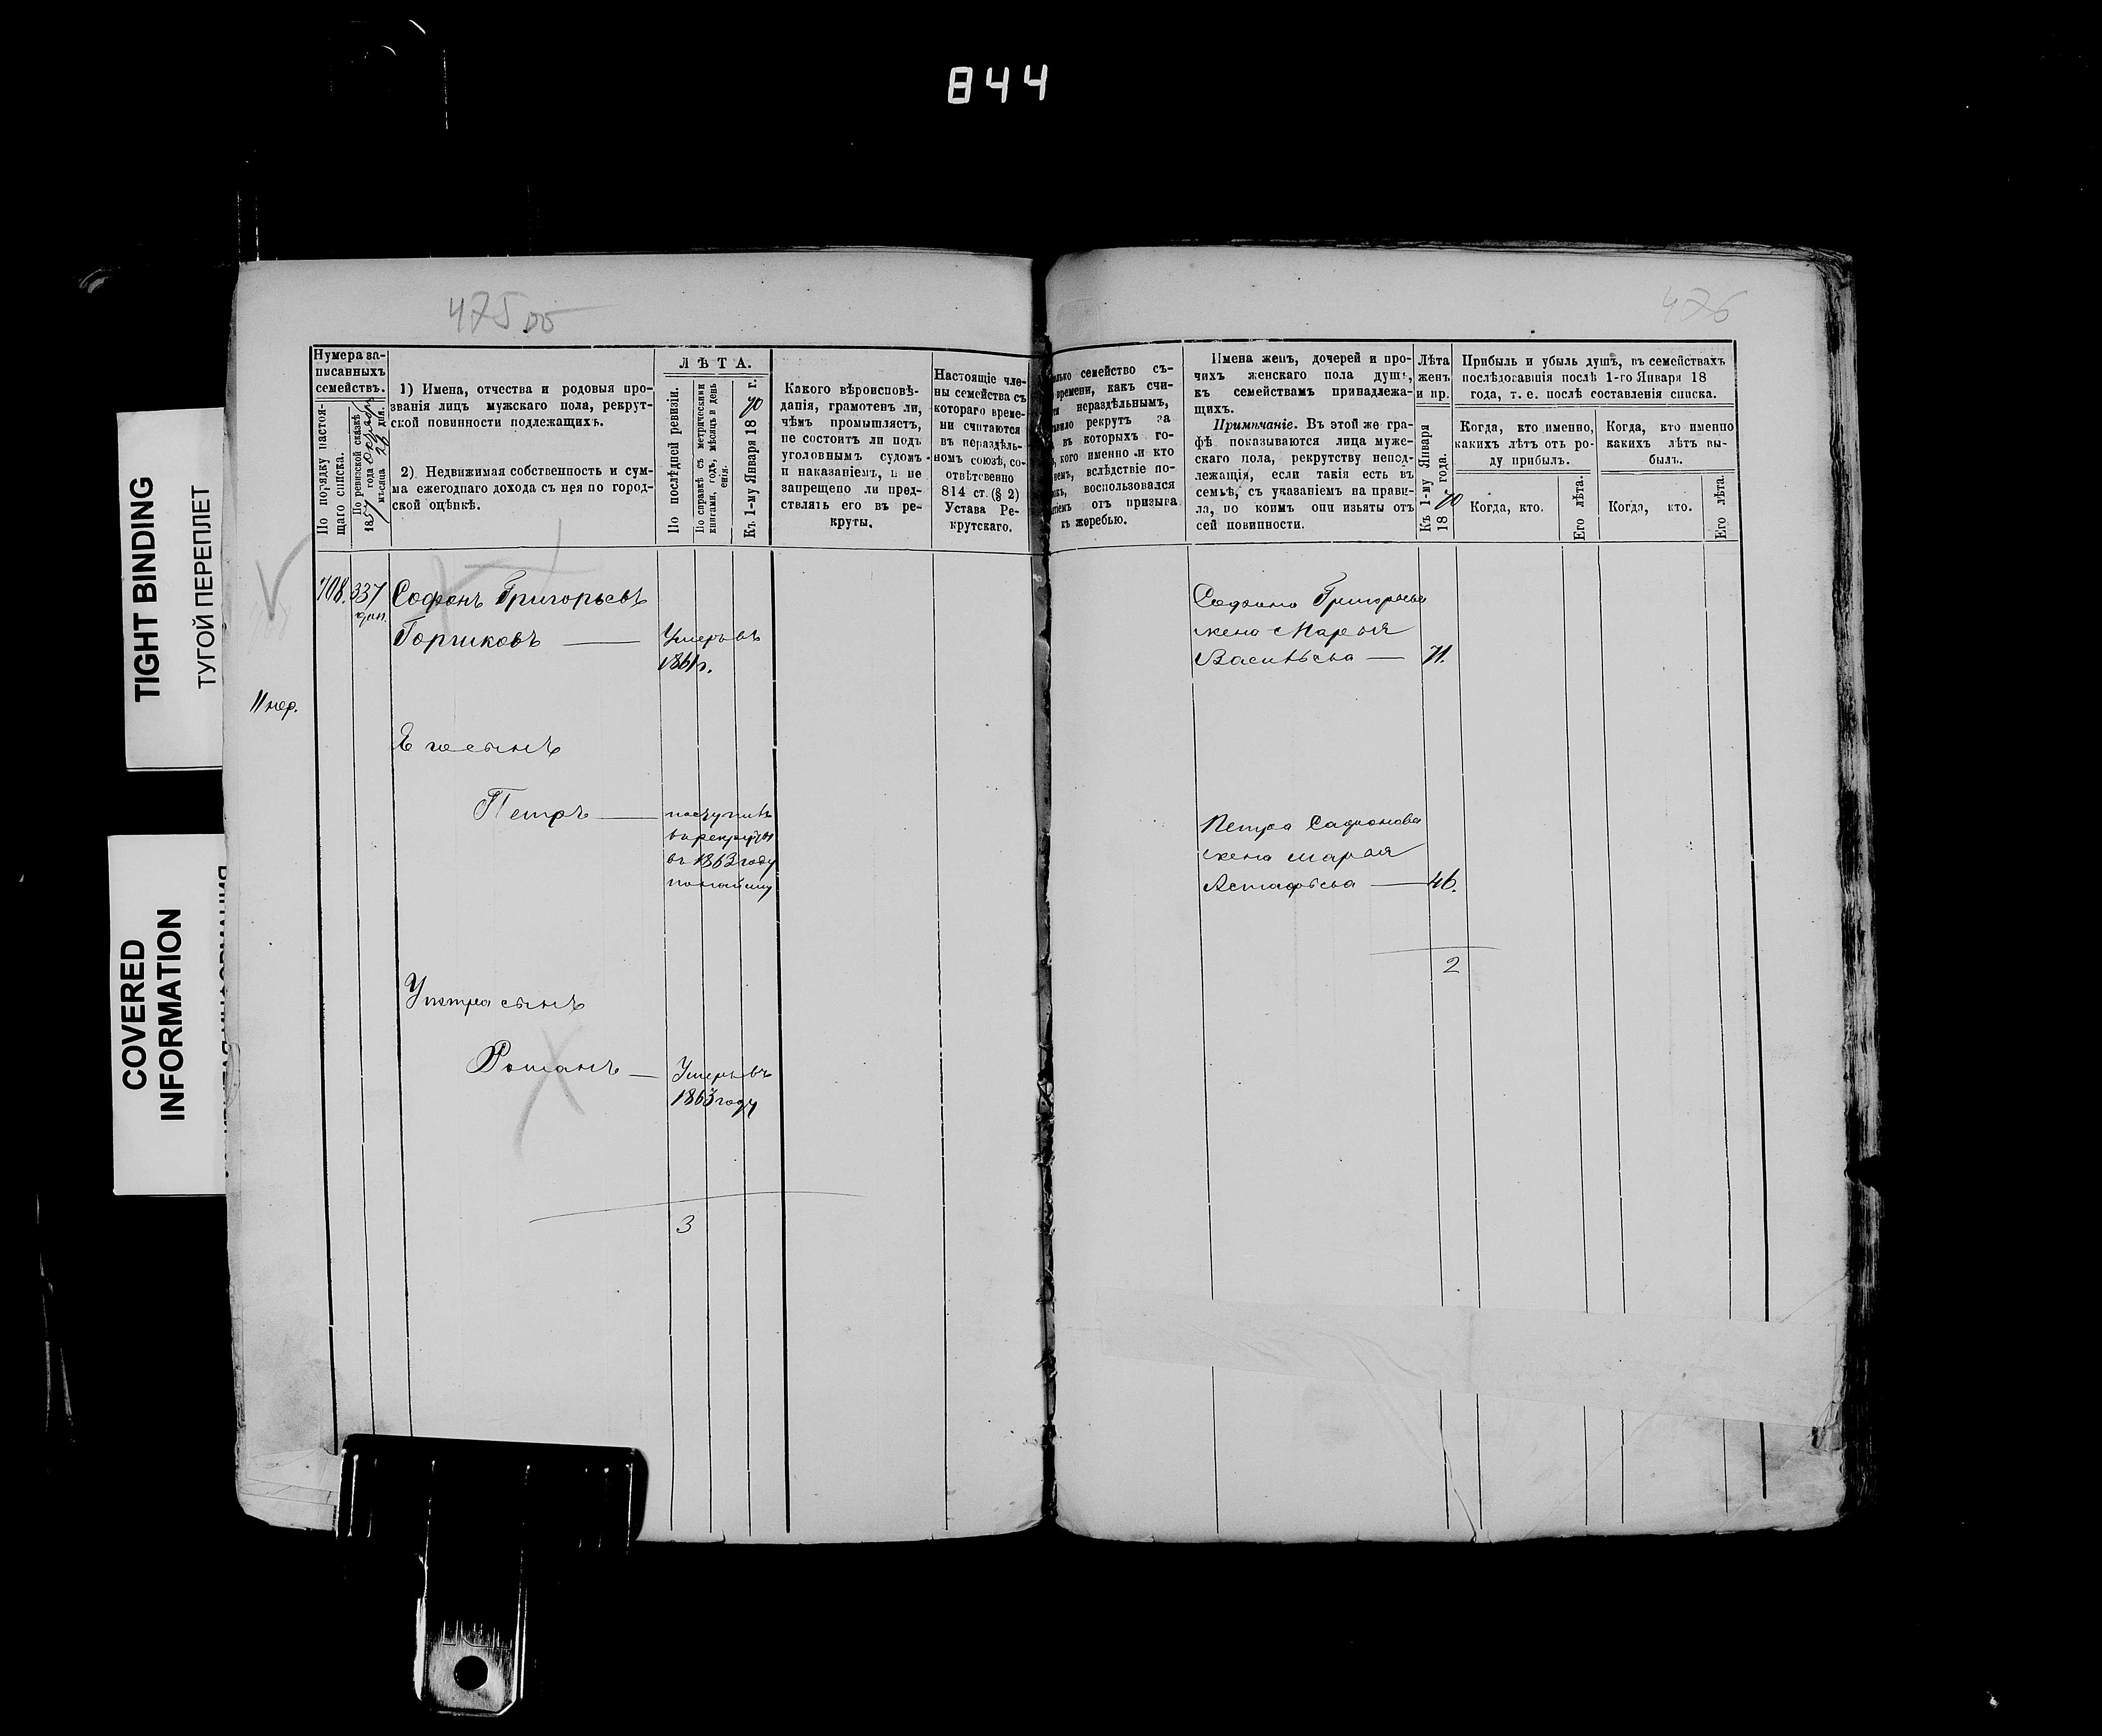 844
TIGHT BINDING
ТУГОЙ ПЕРЕПЛЕТ
COVERED
INFORMATION
475 об
476
Нумера за-
писанныхъ
семействъ.
По порядку настоя-
щаго списка.
По ревизской сказкѣ
1857 года
мѣсяца 26 дня.
1) Имена, отчества и родовыя про-
званія лицъ мужскаго пола, рекрут-
ской повинности подлежащихъ.
2) Недвижимая собственность и сум-
ма ежегоднаго дохода съ нея по город-
ской оцѣнкѣ.
ЛѢТА.
По послѣдней ревизіи.
По справкѣ съ метрическими
книгами, годъ, мѣсяцъ и день
Къ 1-му Января 1870 г.
Какого вѣроисповѣ-
данія, грамотенъ ли,
чѣмъ промышляетъ,
не состоитъ ли подъ
уголовнымъ судомъ
и наказаніемъ, и не
запрещено ли пред-
ставлять его въ ре-
круты.
Настоящіе чле-
ны семейства съ
котораго време-
ни считаются
въ нераздѣль-
номъ союзѣ, со-
отвѣтсвенно
814 ст. (§ 2)
Устава Ре-
крутскаго.
семейство съ-
времени, какъ счи-
нераздѣльнымъ,
рекрутъ за
въ которыхъ го-
кого именно и кто
вслѣдствіе по-
воспользовался
отъ призыва
къ жеребью.
Имена женъ, дочерей и про-
чихъ женскаго пола душъ,
къ семействамъ принадлежа-
щихъ.
Примѣчаніе. Въ этой же гра-
фѣ показываются лица муже-
скаго пола, рекрутству непод-
лежащія, если такія есть въ
семьѣ, съ указаніемъ на прави-
ла, по коимъ они изъяты отъ
сей повинности.
Лѣта
женъ
и пр.
Къ 1-му Января
1870 года.
Прибыль и убыль душъ, въ семействахъ
послѣдовавшія послѣ 1-го Января 18
года, т. е. послѣ составленія списка.
Когда, кто именно,
какихъ лѣтъ отъ ро-
ду прибылъ.
Когда, кто именно
какихъ лѣтъ вы-
былъ.
Когда, кто.
Его лѣта.
Когда, кто.
Его лѣта.
708. 337 Софонъ Григорьевъ
доп.
Горшковъ — Умеръ въ
1861г.
Его сынъ
Петръ — поступилъ
в рекруты
въ 1863 году
по найму
У петра сынъ
Романъ — Умеръ въ
1863 году
3
Софона Григорьева
жена Марья
Васильева — 71.
Петра Сафонова
жена марья
Астафьева — 46.
2